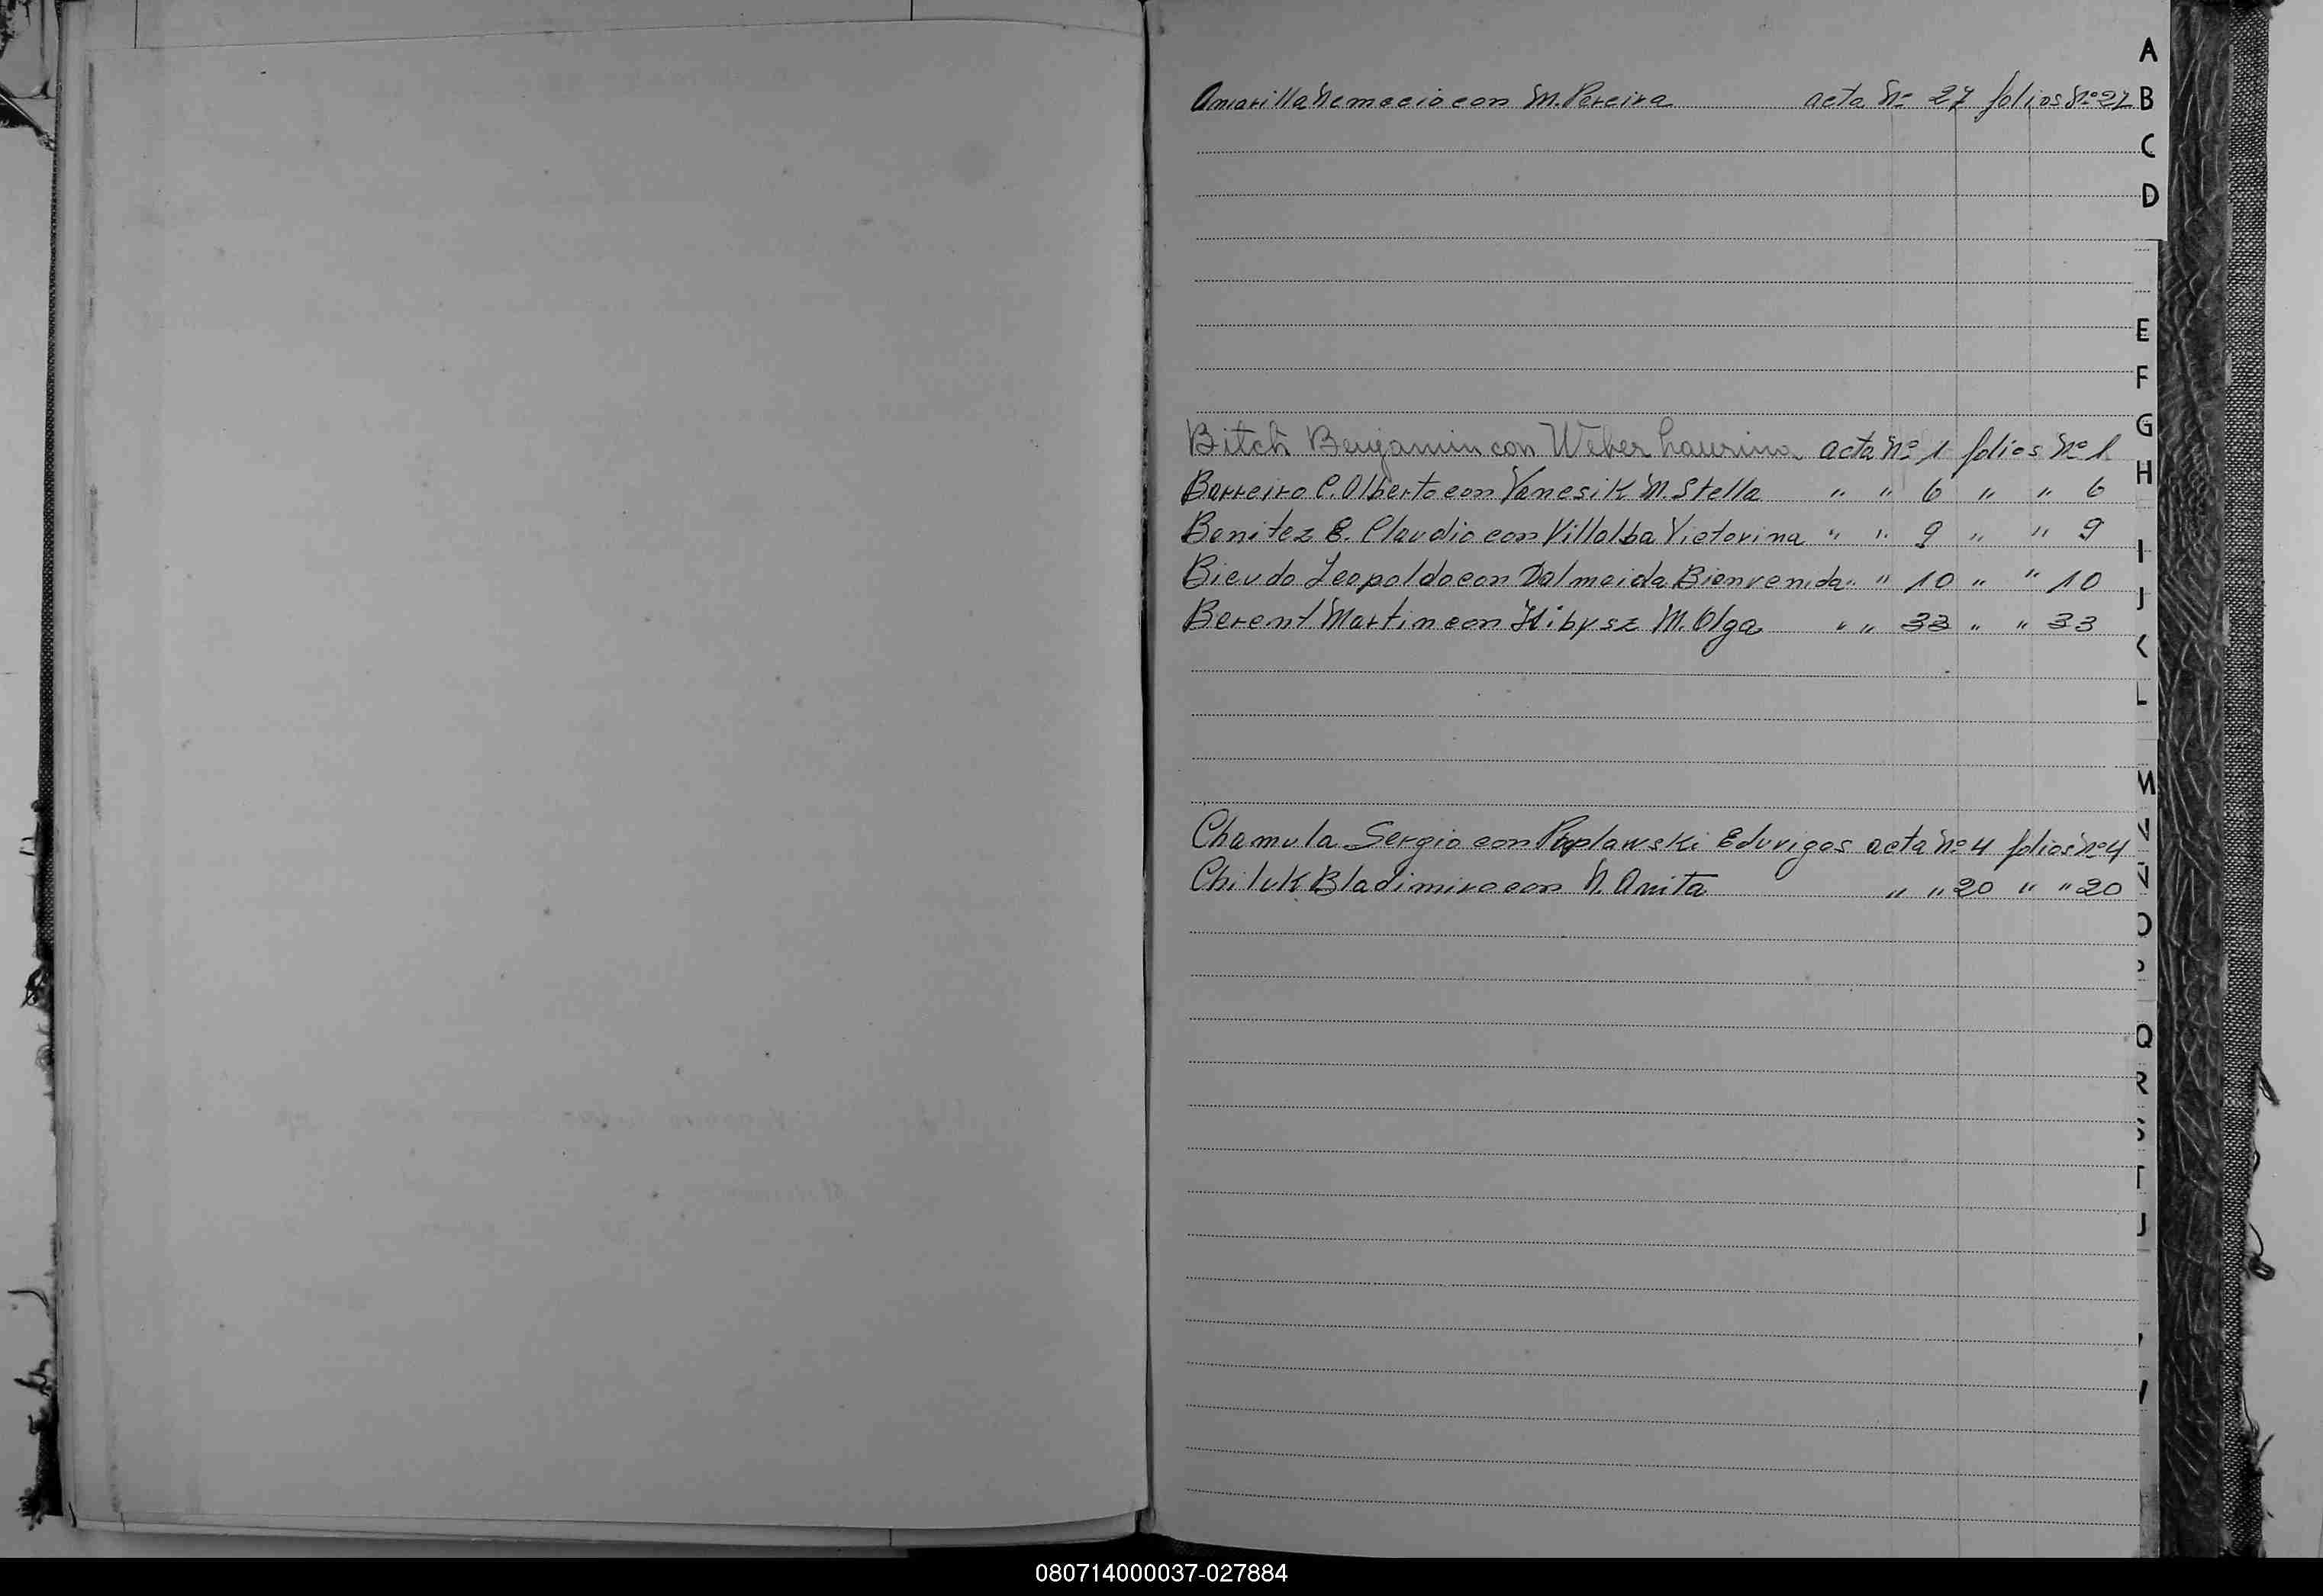 A
Amarilla Nemecio con M. Pereira acta Nº 27 folios Nº 27
B
C
D
E
F
G
Bitch Benjamin con Weber Laurina acta Nº 1 folios Nº 1
H
Barreiro C. Alberto con Yanesik M. Stella " " 6 " " 6
Benitez E. Claudio con Villalba Victorina " " 9 " " 9
I
Bieudo Leopoldo con Dalmeida Bienvenida " " 10 " " 10
J
Berent Martin con Hibysz M. Olga " " 33 " " 33
K
L
M
Chamula Sergio con Poplawski Eduviges acta Nº 4 folios Nº 4
N
Chiluk Bladimiro con N. Anita " " 20 " " 20
Ñ
O
P
Q
R
S
T
U
080714000037-027884